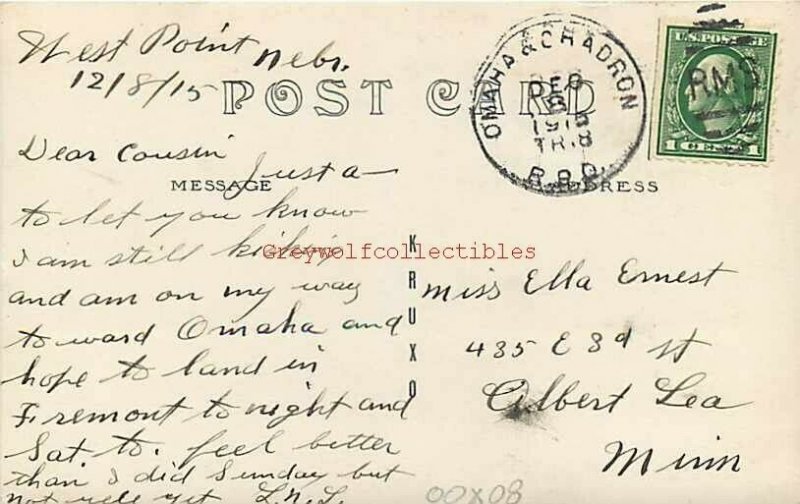 West Point Nebr.
12/8/15
POST CARD
OMAHA & CHADRON
DEC
8
TR.
R.P.O.
RMS
U.S. POSTAGE
1 CENT 1
Dear Cousin
Just a
MESSAGE
ADDRESS
to let you know
I am still kickin
Greywolfcollectibles
and am on my way
to ward Omaha and
hope to land in
Fremont to night and
Sat to. feel better
than I did Sunday but
not yet L.N.L.
KRUXO
Miss Ella Ernest
435 E 3d st
Albert Lea
Minn
00X08